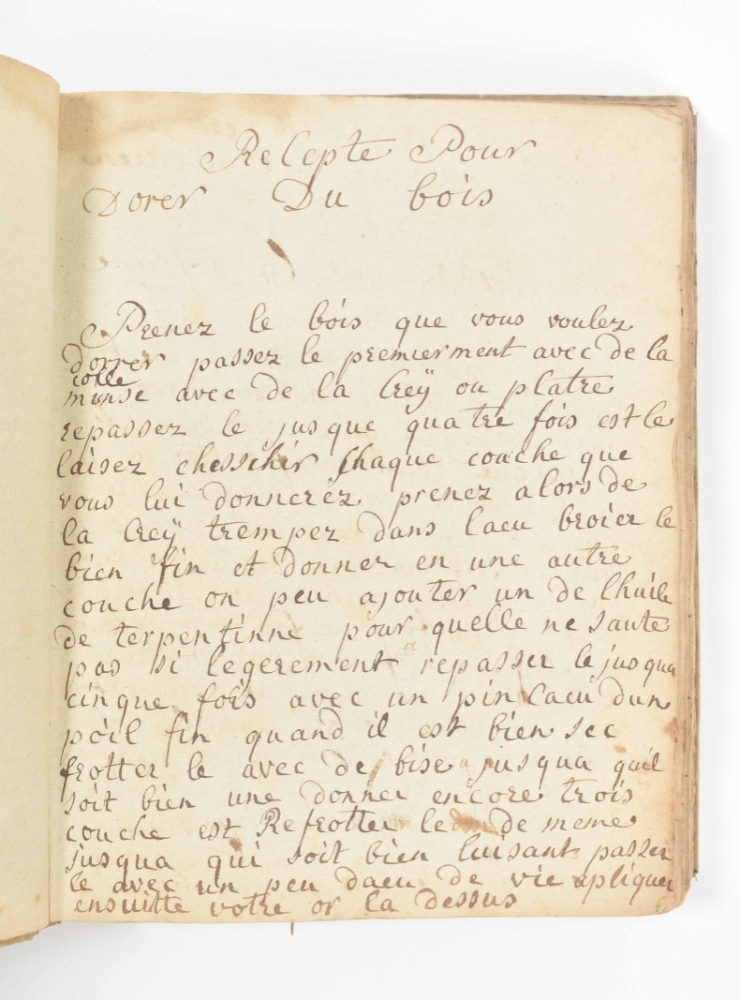 Recepte Pour
Dorer Du bois
Prenez le bois que vous voulez
dorrer passez le premierment avec de la
colle
minse avec de la Creÿ ou platre
repassez le jusque quatre fois est le
laisez chesschir Chaque couche que
vous lui donnerez prenez alors de
la Creÿ trempez dans laeu broiez le
bien fin et donner en une autre
couche on peu ajouter un de lhuile
de terpentinne pour quelle ne saute
pas si legerement repasser le jusqua
cinque fois avec un pinCaeu dun
poil fin quand il est bien sec
frotter le avec de bise jusqua quil
soit bien une donner encore trois
couche est Refrotter le de meme
jusqua qui soit bien luisant passer
le avec un peu daeu de vie apliquer
ensuitte votre or la dessus